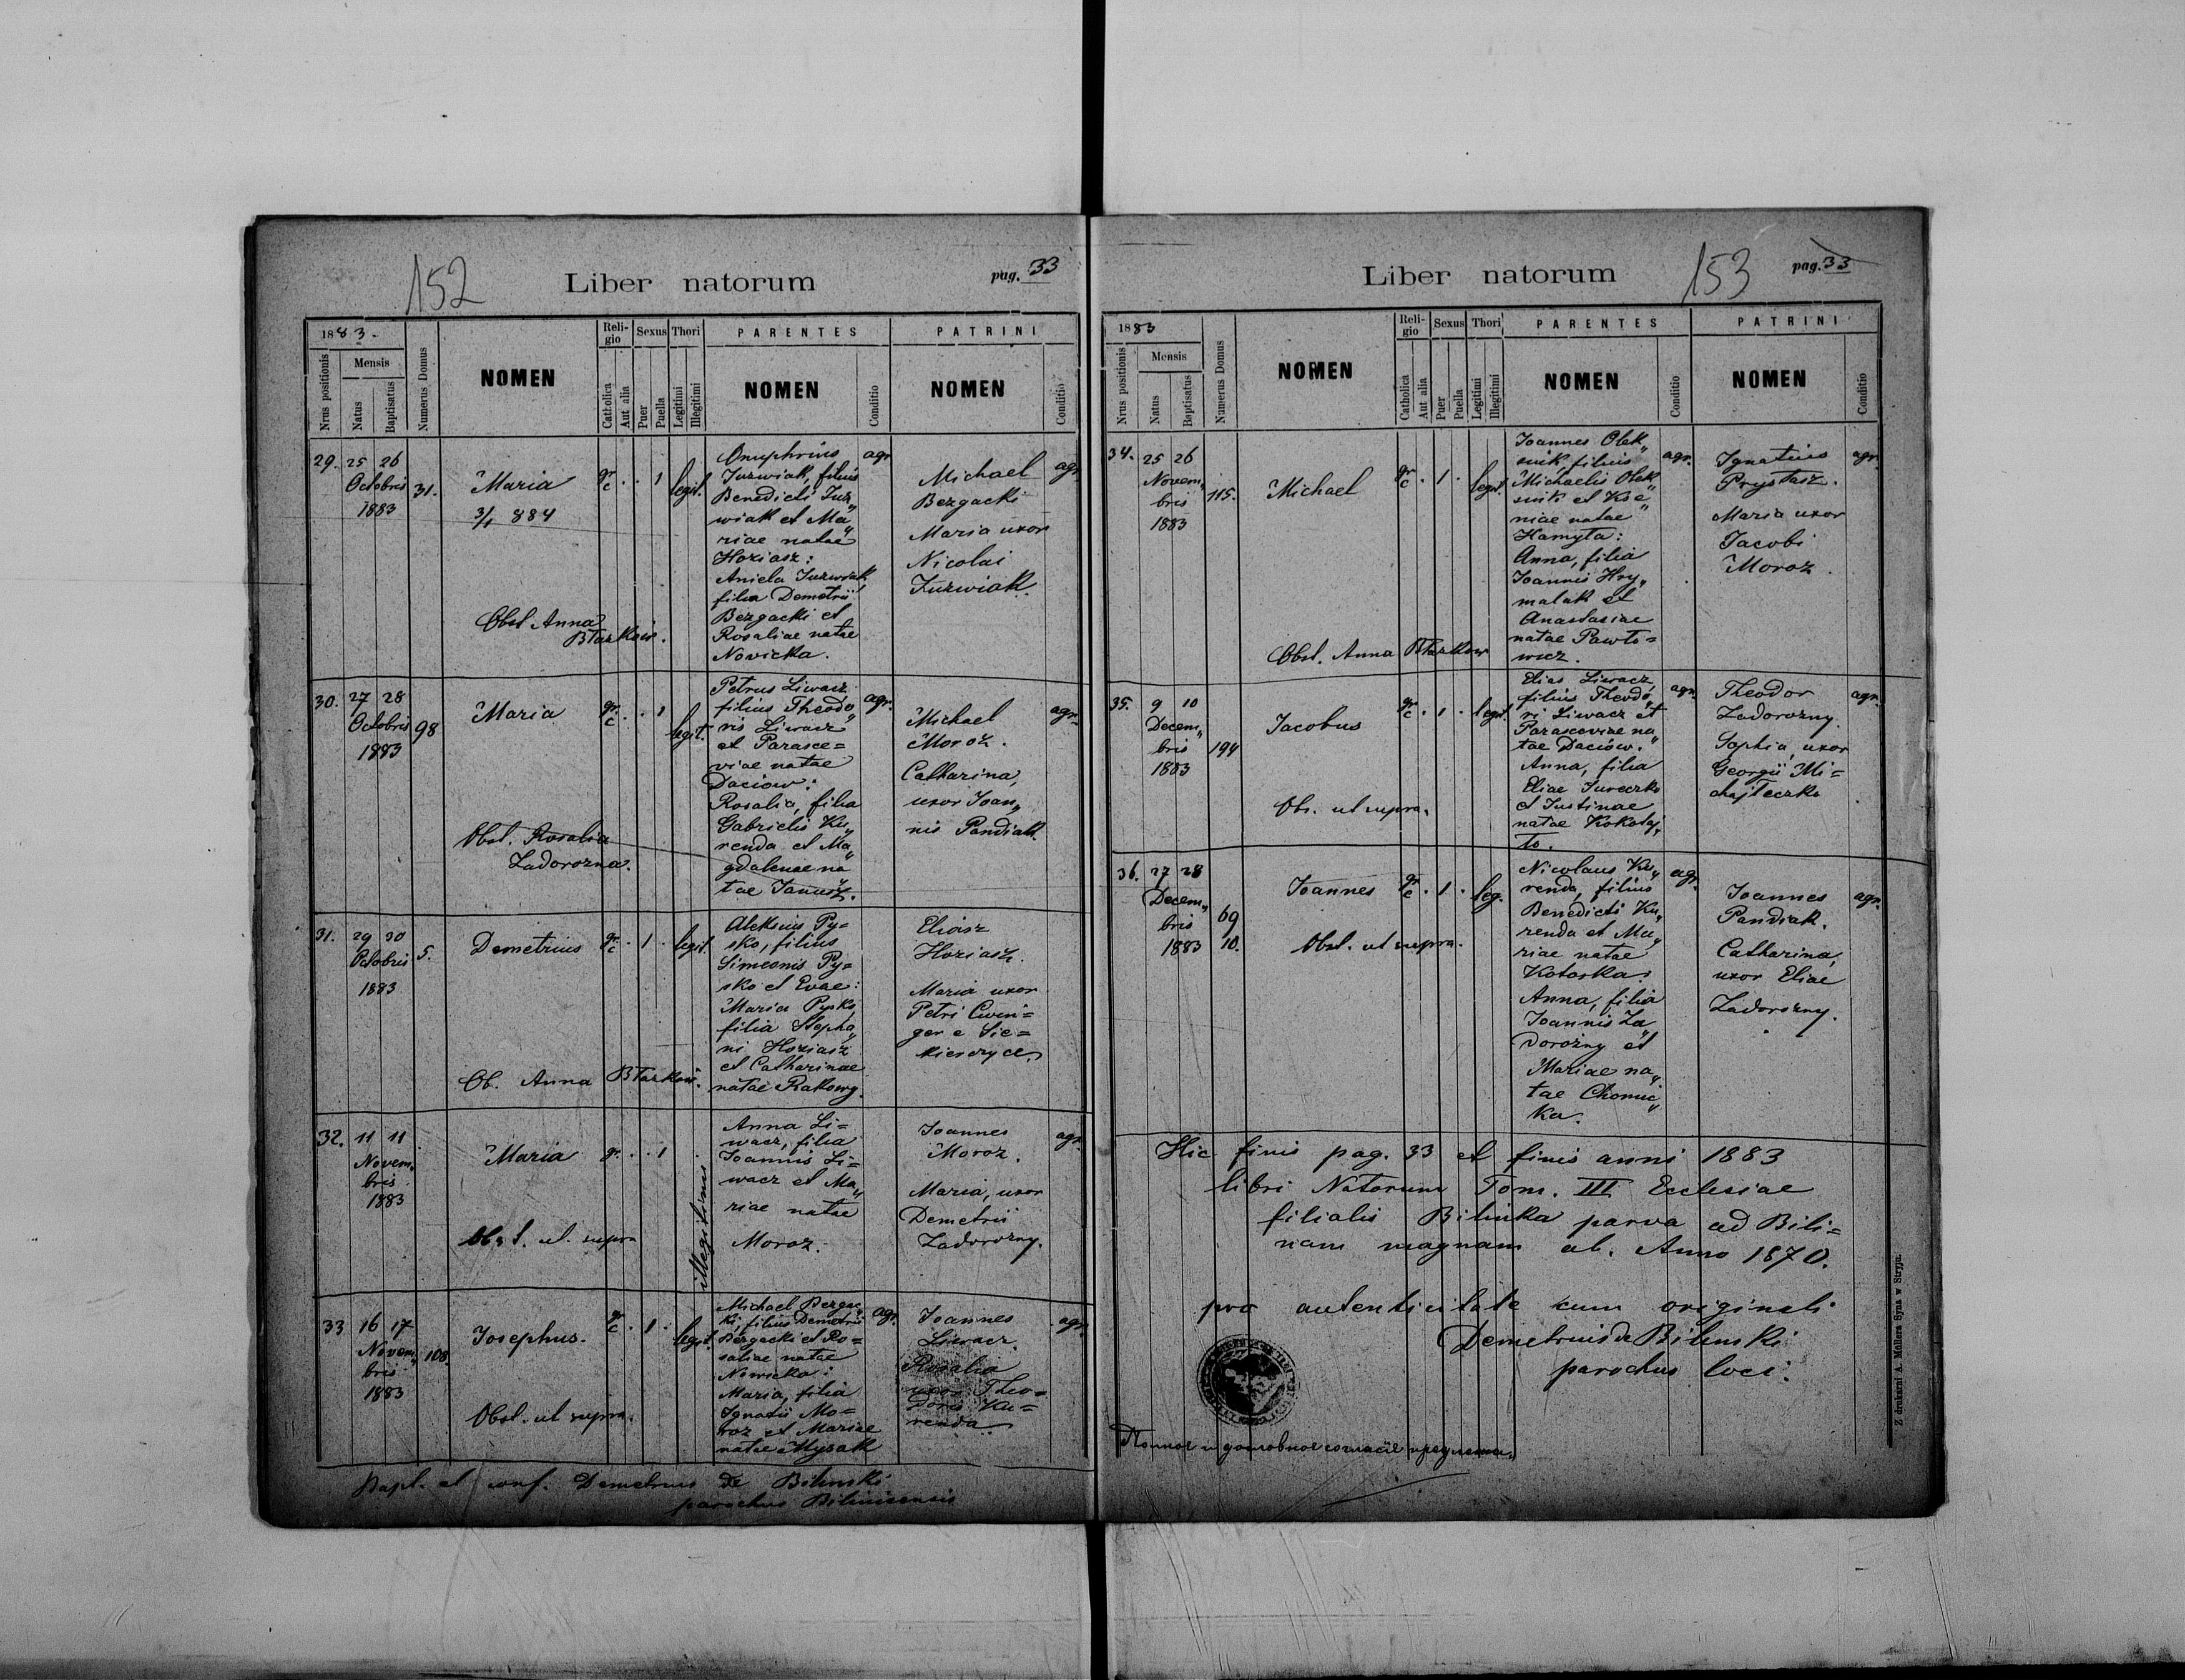 152
Liber natorum
pag. 33
1883.
Nrus positionis
Mensis
Natus
Baptisatus
Numerus Domus
NOMEN
Reli-
gio
Catholica
Aut alia
Sexus
Puer
Puella
Thori
Legitimi
Illegitimi
PARENTES
NOMEN
Conditio
PATRINI
NOMEN
Conditio
29. 25 26
Octobris
1883
31.
Maria
3/1 884
Obst Anna
Błazków.
gr
c
. . 1
legit.
Onuphrius
Juzwiak, filius
Benedicti Juz„
wiak et Ma„
riae natae
Hoziasz:
Aniela Juzwiak
filia Demetrii
Bezgacki et
Rosaliae natae
Novicka.
agr
Michael
Bezgacki
Maria uxor
Nicolai
Juzwiak.
agr.
30. 27 28
Octobris
1883
98
Maria
Obst. Rosalia
Zadorozna.
gr.
c
. . 1
legit.
Petrus Liwacz
filius Theodo„
ris Liwacz
et Parasce=
viae natae
Daciow:
Rosalia, filia
Gabrielis Ku„
renda et Ma„
gdalenae na„
tae Janusz.
agr.
Michael
Moroz.
Catharina,
uxor Joan„
nis Pandiak.
agr.
31. 29 30
Octobris
1883
5.
Demetrius
Ob. Anna Błazków.
gr
c
. 1 .
legit.
Aleksius Py=
sko, filius
Simeonis Py=
sko et Evae:
Maria Pysko
filia Stepha„
ni Hoziasz
et Catharinae
natae Rakowy.
Eliasz
Hoziasz.
Maria uxor
Petri Cwin=
ger e Sie=
kierzyce.
32. 11 11
Novem„
bris
1883
Maria
Obst. ut supra
gr. . . 1
illegitimi
Anna Li=
wacz, filia
Joannis Li=
wacz et Ma„
riae natae
Moroz.
Joannes
Moroz.
Maria, uxor
Demetrii
Zadorozny.
agr.
33 16 17
Novem„
bris
1883
108.
Josephus.
Obst. ut supra.
gr
c
. 1 .
legit.
Michael Bezgac„
ki, filius Demetrii
Bezgacki et Ro=
saliae natae
Nowicka:
Maria, filia
Ignatii Mo=
roz et Mariae
natae Mysak
agr.
Joannes
Liwacz.
Rosalia
uxor Theo=
doris Ku=
renda.
agr.
Bapt. et conf. Demetrius de Bilinski
parochus Bilinicensis
Liber natorum
153
pag. 33
1883
Nrus positionis
Mensis
Natus
Baptisatus
Numerus Domus
NOMEN
Reli-
gio
Catholica
Aut alia
Sexus
Puer
Puella
Thori
Legitimi
Illegitimi
PARENTES
NOMEN
Conditio
PATRINI
NOMEN
Conditio
34. 25 26
Novem„
bris
1883
115.
Michael
Obst. Anna Błazkow
gr
c
. 1 .
legit.
Joannes Olek„
siuk, filius
Michaelis Olek„
siuk et Kse„
niae natae
Hamyta:
Anna, filia
Joannis Hry„
malak et
Anastasiae
natae Pawło=
wicz.
agr.
Ignatius
Prystasz.
Maria uxor
Jacobi
Moroz.
agr.
35. 9 10
Decem„
bris
1883
194
Jacobus
Ob. ut supra.
gr
c
. 1 .
legit.
Elias Liwacz,
filius Theodo„
ri Liwacz et
Parasceviae na„
tae Daciów.
Anna, filia
Eliae Jureczko
et Justinae
natae Kokotaj„
ło.
agr.
Theodor
Zadorozny.
Sophia, uxor
Georgii Mi=
chajleczko
agr.
36. 27 28
Decem„
bris
1883
69
10.
Joannes
Obst. ut supra.
gr
c
. 1 .
leg.
Nicolaus Ku„
renda, filius
Benedicti Ku„
renda et Ma„
riae natae
Kotoska:
Anna, filia
Joannis Za„
dorozny et
Mariae na„
tae Chomic„
ka.
agr.
Joannes
Pandiak.
Catharina,
uxor Eliae
Zadorozny.
agr.
Hic finis pag. 33 et finis anni 1883
libri Natorum Tom. III Ecclesiae
filialis Bilinka parva ad Bili=
nam magnam ab. Anno 1870.
pro autenticitate cum originali
Demetrius de Bilinski
parochus loci.
Z drukarni A. Müllera Syna w Stryju.